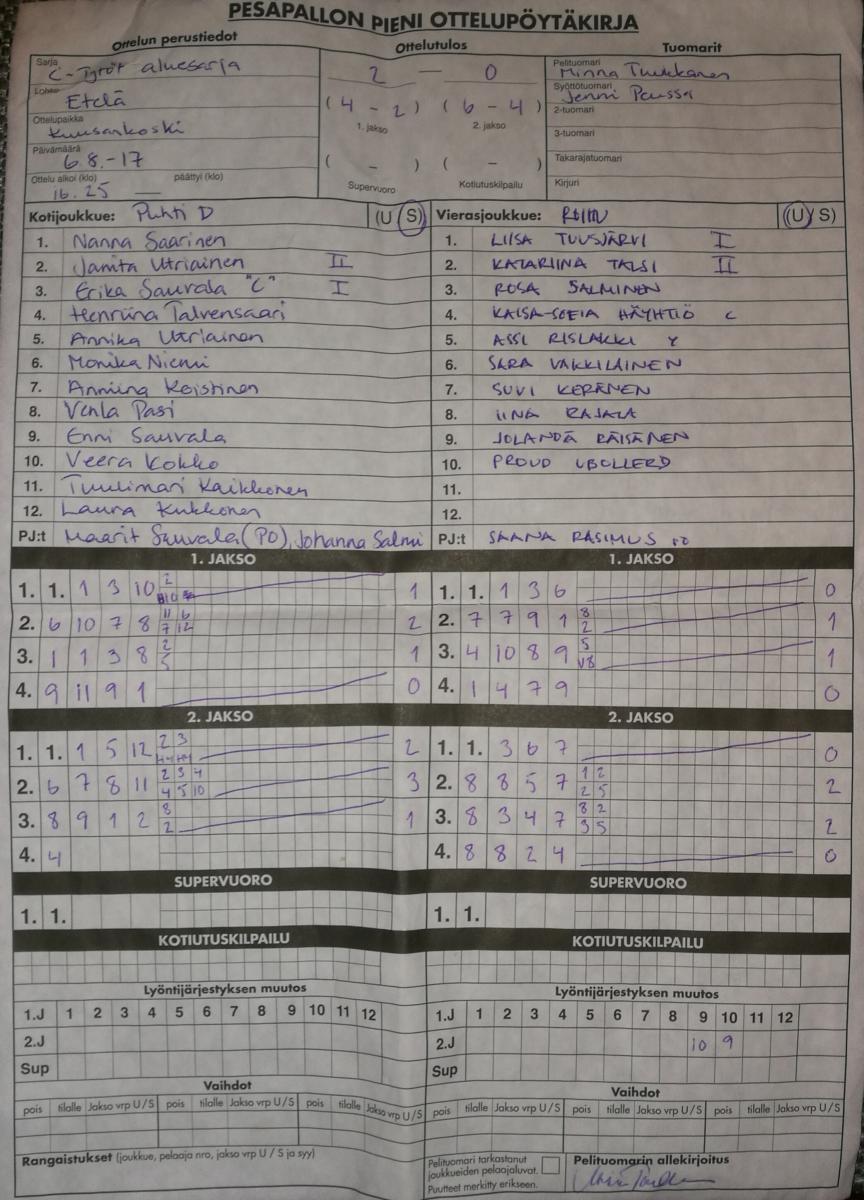 PESÄPALLON PIENI OTTELUPÖYTÄKIRJA
Ottelun perustiedot
Ottelutulos
Tuomarit
Sarja C-Tytöt aluesarja
Lohko Etelä
Ottelupaikka Kuusankoski
Päivämäärä 6.8.-17
Ottelu alkoi (klo) 16.25 päättyi (klo) —
2 — 0
( 4 - 2 ) ( 6 - 4 )
1. jakso 2. jakso
( - ) ( - )
Supervuoro Kotiutuskilpailu
Pelituomari Minna Tuukkanen
Syöttötuomari Jenni
2-tuomari
3-tuomari
Takarajatuomari
Kirjuri
Kotijoukkue: Puhti D (U S)
1. Nanna Saarinen
2. Janita Utriainen II
3. Erika Sauvala "C" I
4. Henriina Talvensaari
5. Annika Utriainen
6. Monika Niemi
7. Anniina Koistinen
8. Venla Pasi
9. Enni Sauvala
10. Veera Kokko
11. Tuulimari Kaikkonen
12. Laura Kukkonen
PJ:t Maarit Sauvala (PO), Johanna Salmi
Vierasjoukkue: (U/S)
1. LIISA TUUSJÄRVI I
2. KATARIINA TALSI II
3. ROSA SALMINEN
4. KAISA-SOFIA HÄYHTIÖ C
5. ASSI RISLAKKI Y
6. SARA VAKKILAINEN
7. SUVI KERÄNEN
8. IINA RAJALA
9. JOLANDA RÄISÄNEN
10. PROUD UBOLLERD
11.
12.
PJ:t SAANA RASIMUS
1. JAKSO
1. 1. 1 3 10 2 1
2. 6 10 7 8 11 6 7 12 2
3. 1 1 3 8 2 5 1
4. 9 11 9 1 0
1. JAKSO
1. 1. 1 3 6 0
2. 7 7 9 1 8 2 1
3. 4 10 8 9 5 V8 1
4. 1 4 7 9 0
2. JAKSO
1. 1. 1 5 12 2 3 2
2. 6 7 8 11 2 3 4 4 5 10 3
3. 8 9 1 2 8 2 1
4. 4
2. JAKSO
1. 1. 3 6 7 0
2. 8 8 5 7 1 2 2 5 2
3. 8 3 4 7 8 2 3 5 2
4. 8 8 2 4 0
SUPERVUORO
1. 1.
SUPERVUORO
1. 1.
KOTIUTUSKILPAILU
KOTIUTUSKILPAILU
Lyöntijärjestyksen muutos
1.J 1 2 3 4 5 6 7 8 9 10 11 12
2.J
Sup
Lyöntijärjestyksen muutos
1.J 1 2 3 4 5 6 7 8 9 10 11 12
2.J 10 9
Sup
Vaihdot
pois tilalle Jakso vrp U/S pois tilalle Jakso vrp U/S pois tilalle Jakso vrp U/S
Vaihdot
pois tilalle Jakso vrp U/S pois tilalle Jakso vrp U/S pois tilalle Jakso vrp U/S
Rangaistukset (joukkue, pelaaja nro, jakso vrp U / S ja syy)
Pelituomari tarkastanut
joukkueiden pelaajaluvat.
Puutteet merkitty erikseen.
Pelituomarin allekirjoitus